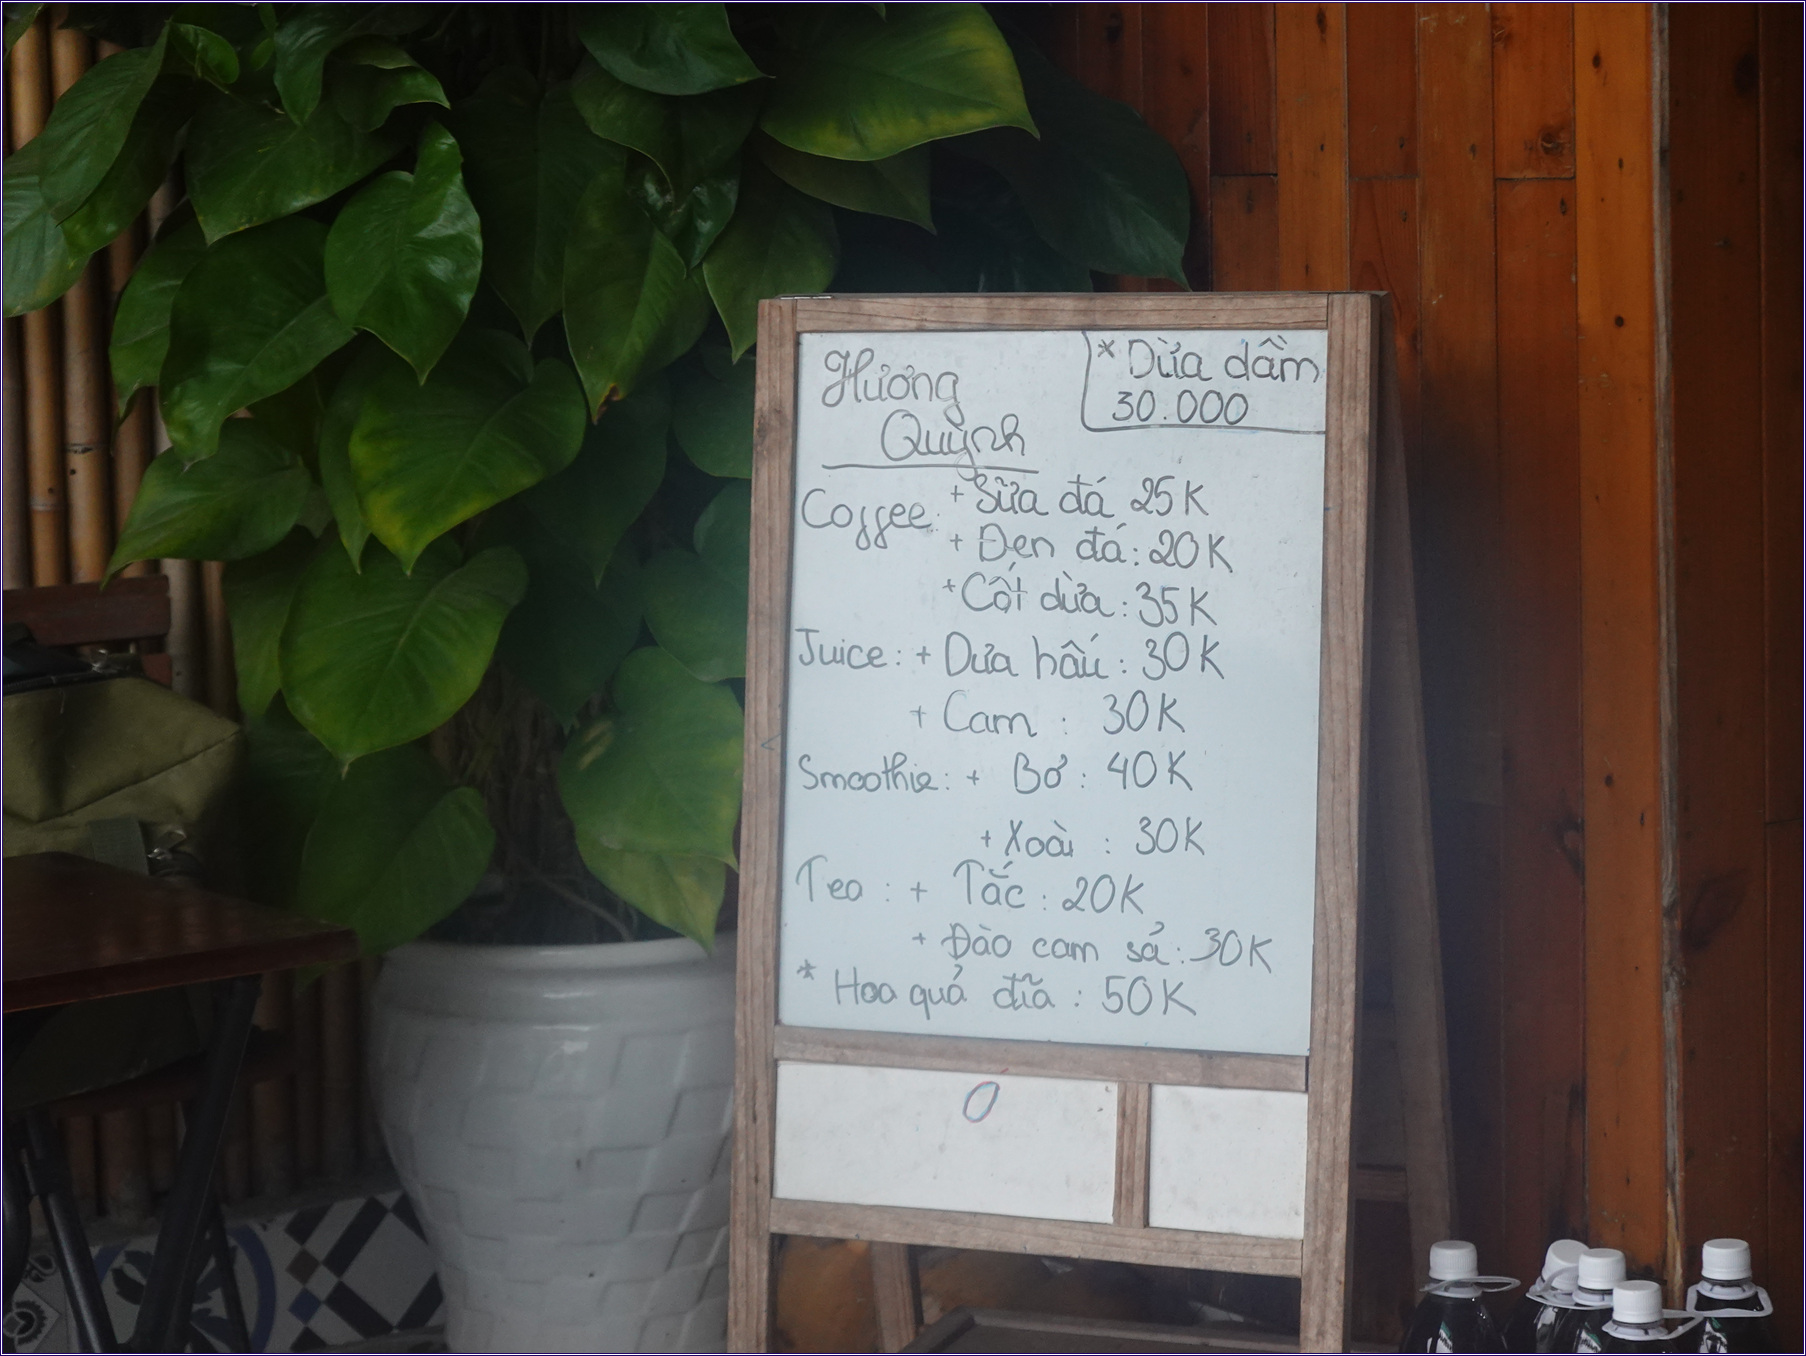 Hương
Quỳnh
* Dừa dầm
30.000
Coffee: + Sữa đá 25K
+ Đen đá: 20K
+ Cốt dừa: 35K
Juice: + Dưa hấu: 30K
+ Cam : 30K
Smoothie: + Bơ: 40K
+ Xoài : 30K
Tea : + Tắc : 20K
+ Đào cam sả: 30K
* Hoa quả đĩa : 50K
0